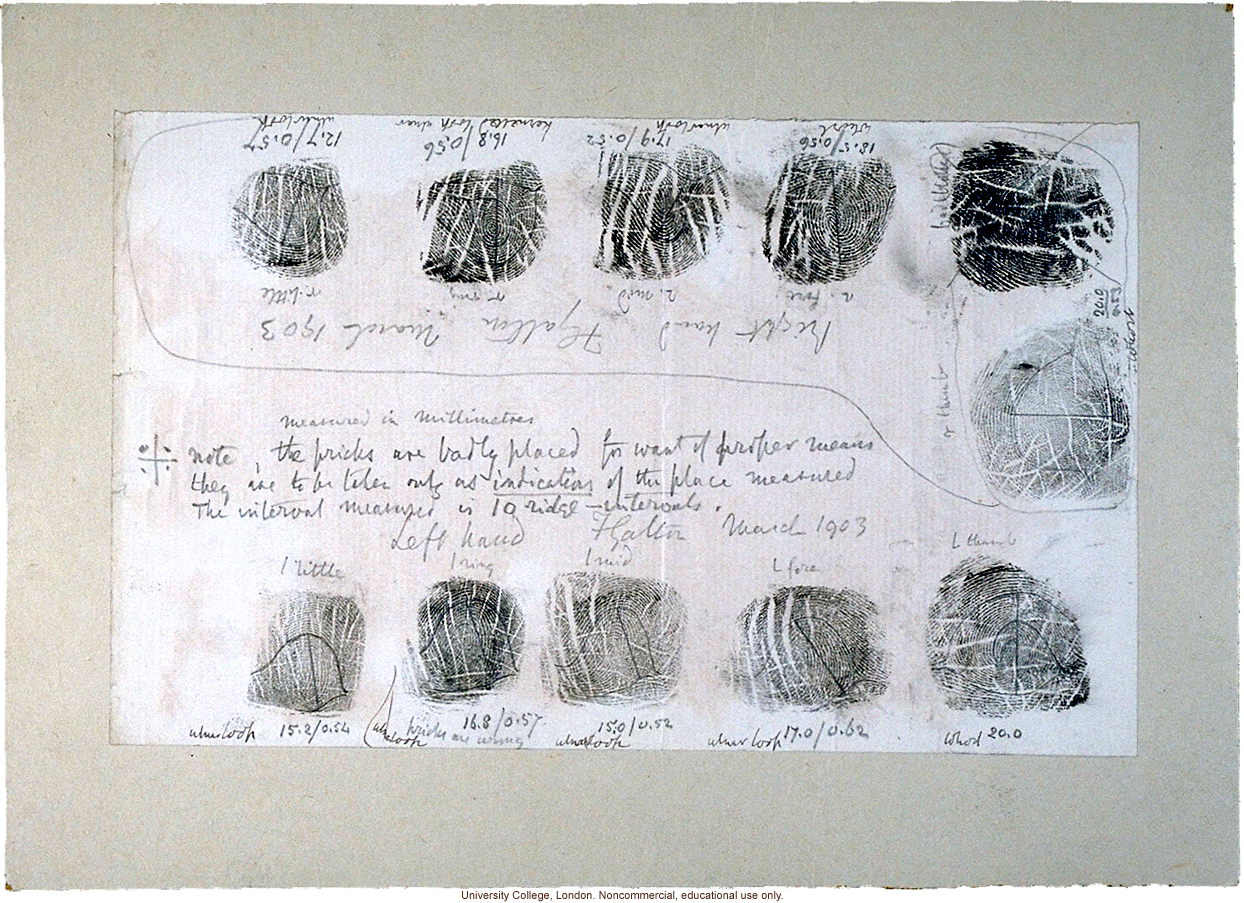 12.7/0.57
ulnar loop
16.8/0.56
kernelled loop ulnar
17.9/0.52
ulnar loop
18.5/0.56
whorl
r. little
r. ring
r. mid
r. fore
Right hand FGalton March 1903
20.0
0.53
whorl
r thumb
measured in millimetres
note, the pricks are badly placed for want of proper means
they are to be taken only as indications of the place measured
The interval measured is 10 ridge-intervals.
Left hand FGalton March 1903
l little
l ring
l mid
l fore
l thumb
ulnar loop 15.2/0.54
loop pricks are wrong 16.8/0.57
ulnar loop 15.0/0.52
ulnar loop 17.0/0.62
whorl 20.0
University College, London. Noncommercial, educational use only.